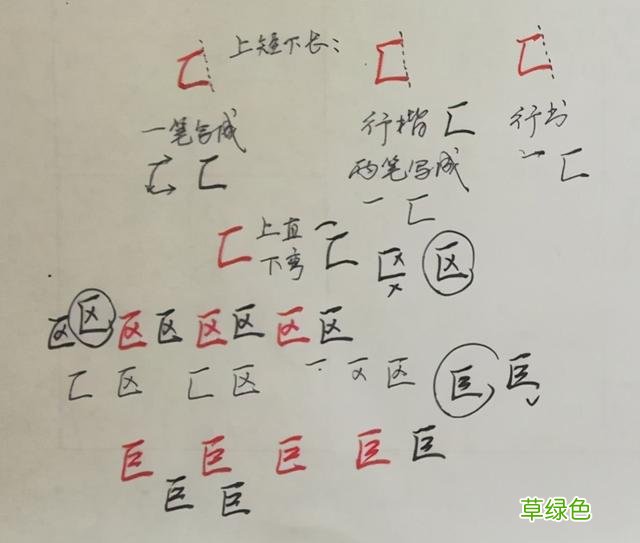 匚 上短下长： 匚 匚
一笔写成 行楷 匚 行书
匚 匚 两笔写成 一 匚
一 匚
匚 上直 匚 区 区
下弯 ×
区 区 区 区 区 区 区 区
匚 区 匚 区 一 区 区 巨 巨
巨 巨 巨 巨 巨
巨 巨
草绿色